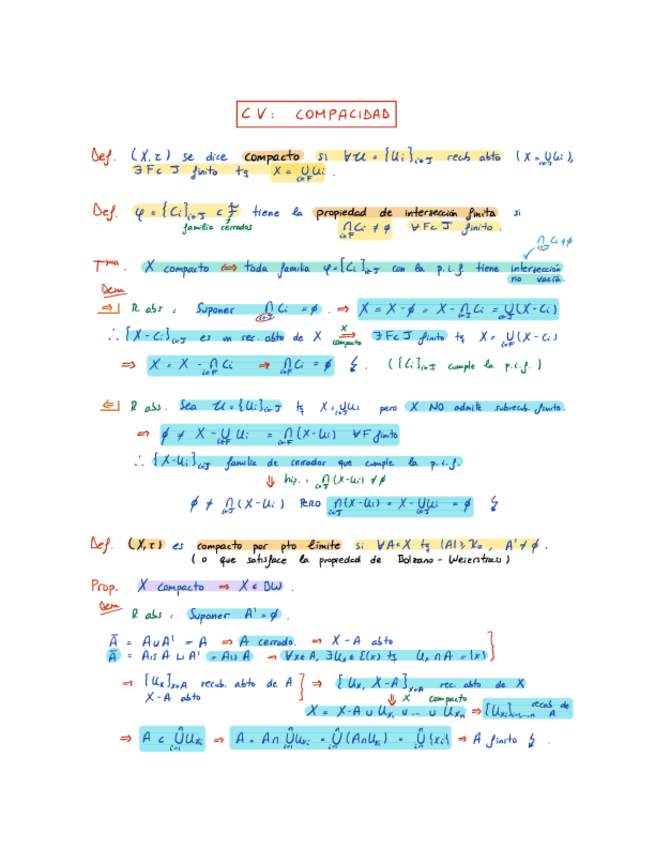 CV: COMPACIDAD
Def. (X,τ) se dice compacto si ∀U = {Ui}i∈J recub abto (X = ∪i∈J Ui),
∃ F ⊂ J finito tq X = ∪i∈F Ui.
Def. φ = {Ci}i∈J ⊂ F tiene la propiedad de intersección finita si
familia cerrados ∩i∈F Ci ≠ ∅ ∀F ⊂ J finito.
∩i∈J Ci ≠ ∅
Tma. X compacto ⟺ toda familia φ = {Ci}i∈J con la p.i.f tiene intersección
no vacía.
Dem
⇒| R abs: Suponer ∩i∈J Ci = ∅. ⇒ X = X - ∅ = X - ∩i∈J Ci = ∪i∈J (X - Ci)
∴ {X - Ci}i∈J es un rec. abto de X ⇒ X compacto ∃ F ⊂ J finito tq X = ∪i∈F (X - Ci)
⇒ X = X - ∩i∈F Ci ⇒ ∩i∈F Ci = ∅ ↯. ({Ci}i∈J cumple la p.i.f.)
⇐| R abs. Sea U = {Ui}i∈J tq X = ∪i∈J Ui pero X NO admite subrecub. finito.
⇒ ∅ ≠ X - ∪i∈F Ui = ∩i∈F (X - Ui) ∀F finito
∴ {X - Ui}i∈J familia de cerrados que cumple la p.i.f.
⇓ hip. : ∩i∈J (X - Ui) ≠ ∅
∅ ≠ ∩i∈J (X - Ui) PERO ∩i∈J (X - Ui) = X - ∪i∈J Ui = ∅ ↯
Def. (X,τ) es compacto por pto límite si ∀A ⊂ X tq |A| ≥ ℵ₀, A' ≠ ∅.
(o que satisface la propiedad de Bolzano - Weierstrass)
Prop. X compacto ⇒ X es BW.
Dem
R abs: Suponer A' = ∅.
Ā = A ∪ A' = A ⇒ A cerrado. ⇒ X - A abto
Ā = Ais A ⊔ A' = Ais A ⇒ ∀x ∈ A, ∃Ux ∈ E(x) tq Ux ∩ A = {x}
⇒ {Ux}x∈A recub. abto de A ⇒ {Ux, X - A}x∈A rec. abto de X
X - A abto ⇓ X compacto
X = X - A ∪ Ux₁ ∪ ... ∪ Uxn ⇒ {Uxi}i=1,...,n recub de A
⇒ A ⊂ ∪ⁿi=1 Uxi ⇒ A = A ∩ ∪ⁿi=1 Uxi = ∪ⁿi=1 (A ∩ Uxi) = ∪ⁿi=1 {xi} ⇒ A finito ↯.